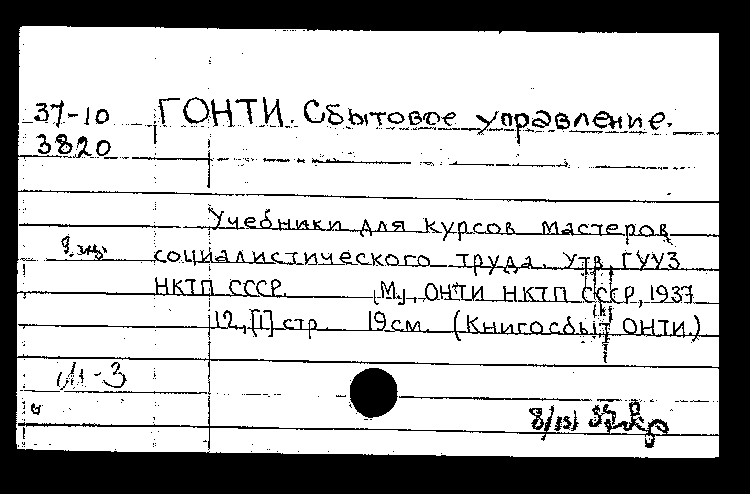 37-10 ГОНТИ. Сбытовое управление.
3820
Учебники для курсов мастеров
социалистического труда. Утв. ГУУЗ
НКТП СССР. [М.], ОНТИ НКТП СССР, 1937
12, [1] стр. 19 см. (Книгосбыт ОНТИ.)
М-3